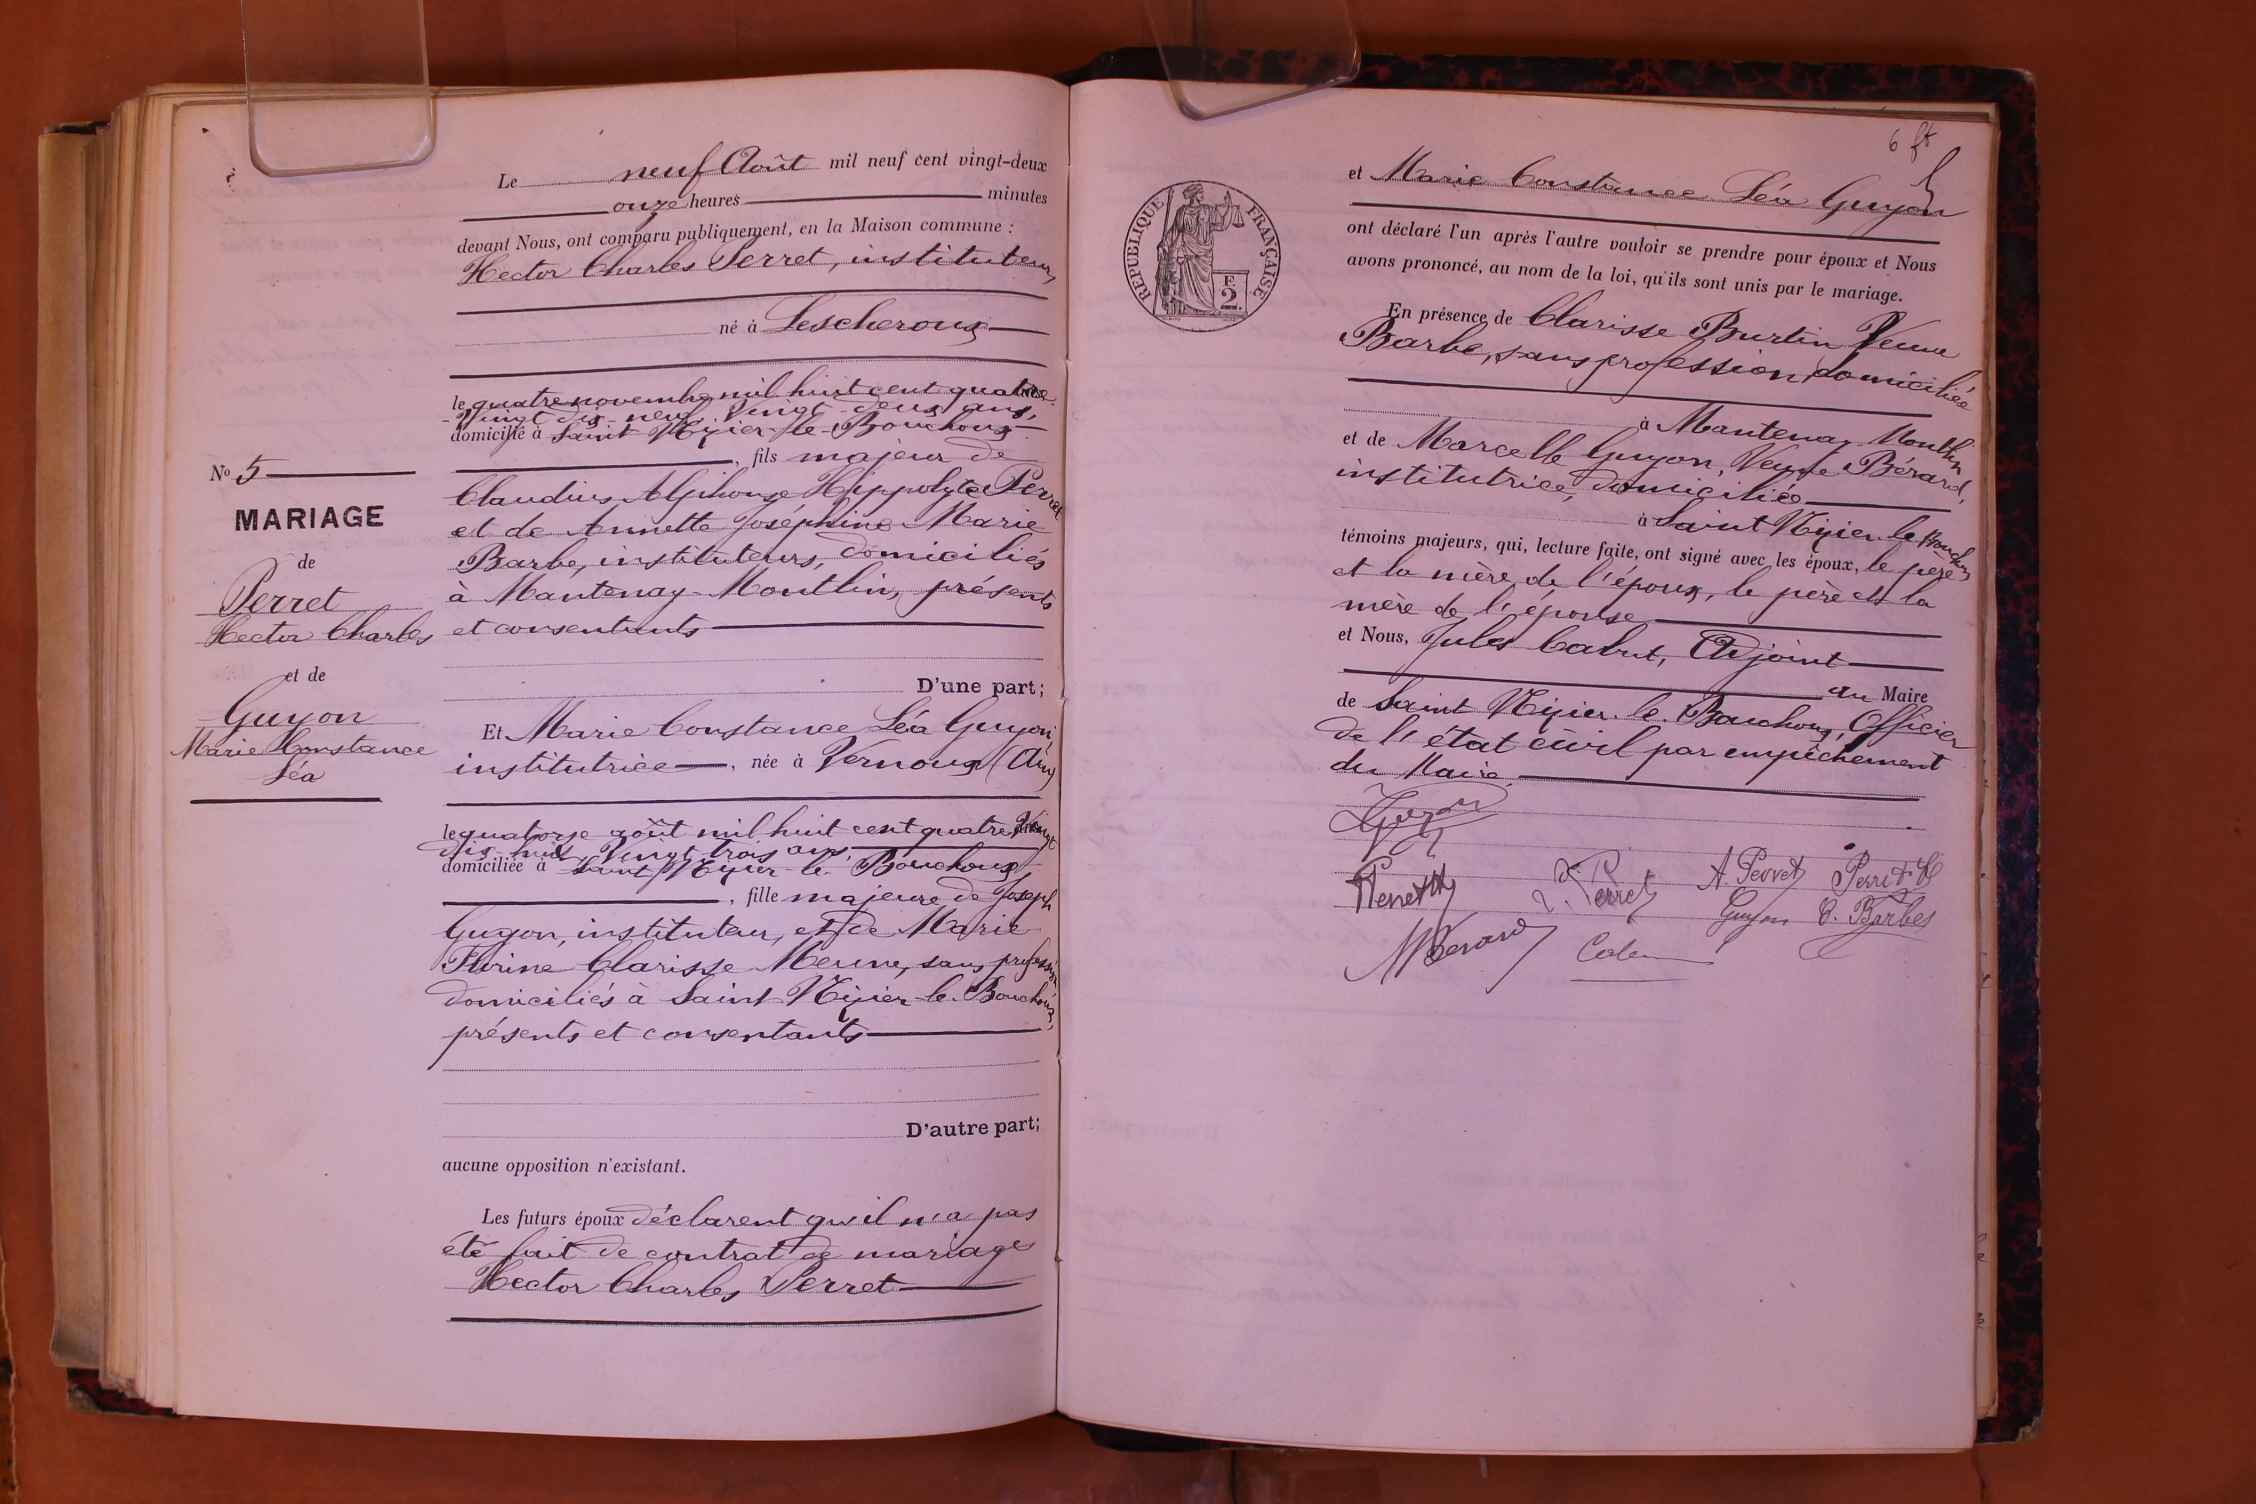 Le neuf Août mil neuf cent vingt-deux
onze heures minutes
devant Nous, ont comparu publiquement, en la Maison commune :
Hector Charles Perret, instituteur,
né à Lescheroux
le quatre novembre mil huit cent quatre-
-Vingt-dix-neuf, Vingt-deux ans,
domicilié à Saint Nizier-le-Bouchoux
, fils majeur de
Claudius Alphonse Hippolyte Perret
et de Annette Joséphine Marie
Barbe, instituteurs, domiciliés
à Mantenay-Montlin, présents
et consentants
D'une part;
Et Marie Constance Léa Guyon
institutrice, née à Vernoux (Ain)
le quatorze août mil huit cent quatre Vingt
dix-huit, Vingt-trois ans,
domiciliée à Saint Nizier-le-Bouchoux
, fille majeure de Joseph
Guyon, instituteur, et de Marie
Clarisse sans profession
domiciliés à Saint-Nizier-le-Bouchoux,
présents et consentants
D'autre part;
aucune opposition n'existant.
Les futurs époux déclarent qu'il n'a pas
été fait de contrat de mariage
Hector Charles Perret
No 5
MARIAGE
de
Perret
Hector Charles
et de
Guyon
Marie Constance
Léa
6
RÉPUBLIQUE FRANÇAISE
F.
2.
et Marie Constance Léa Guyon
ont déclaré l'un après l'autre vouloir se prendre pour époux et Nous
avons prononcé, au nom de la loi, qu'ils sont unis par le mariage.
En présence de Clarisse Burtin Veuve
Barbe, sans profession, domiciliée
à Mantenay Montlin
et de Marcelle Guyon, Veuve Bérard,
institutrice, domiciliée
à Saint Nizier-le-Bouchoux
témoins majeurs, qui, lecture faite, ont signé avec les époux, le père
et la mère de l'époux, le père et la
mère de l'épouse
et Nous, Jules Cabut, Adjoint
au Maire
de Saint Nizier-le-Bouchoux, Officier
de l'état civil par empêchement
du Maire.
Guyon
Perret
A. Perret
Perret H
M Bérard
Guyon
C. Barbe